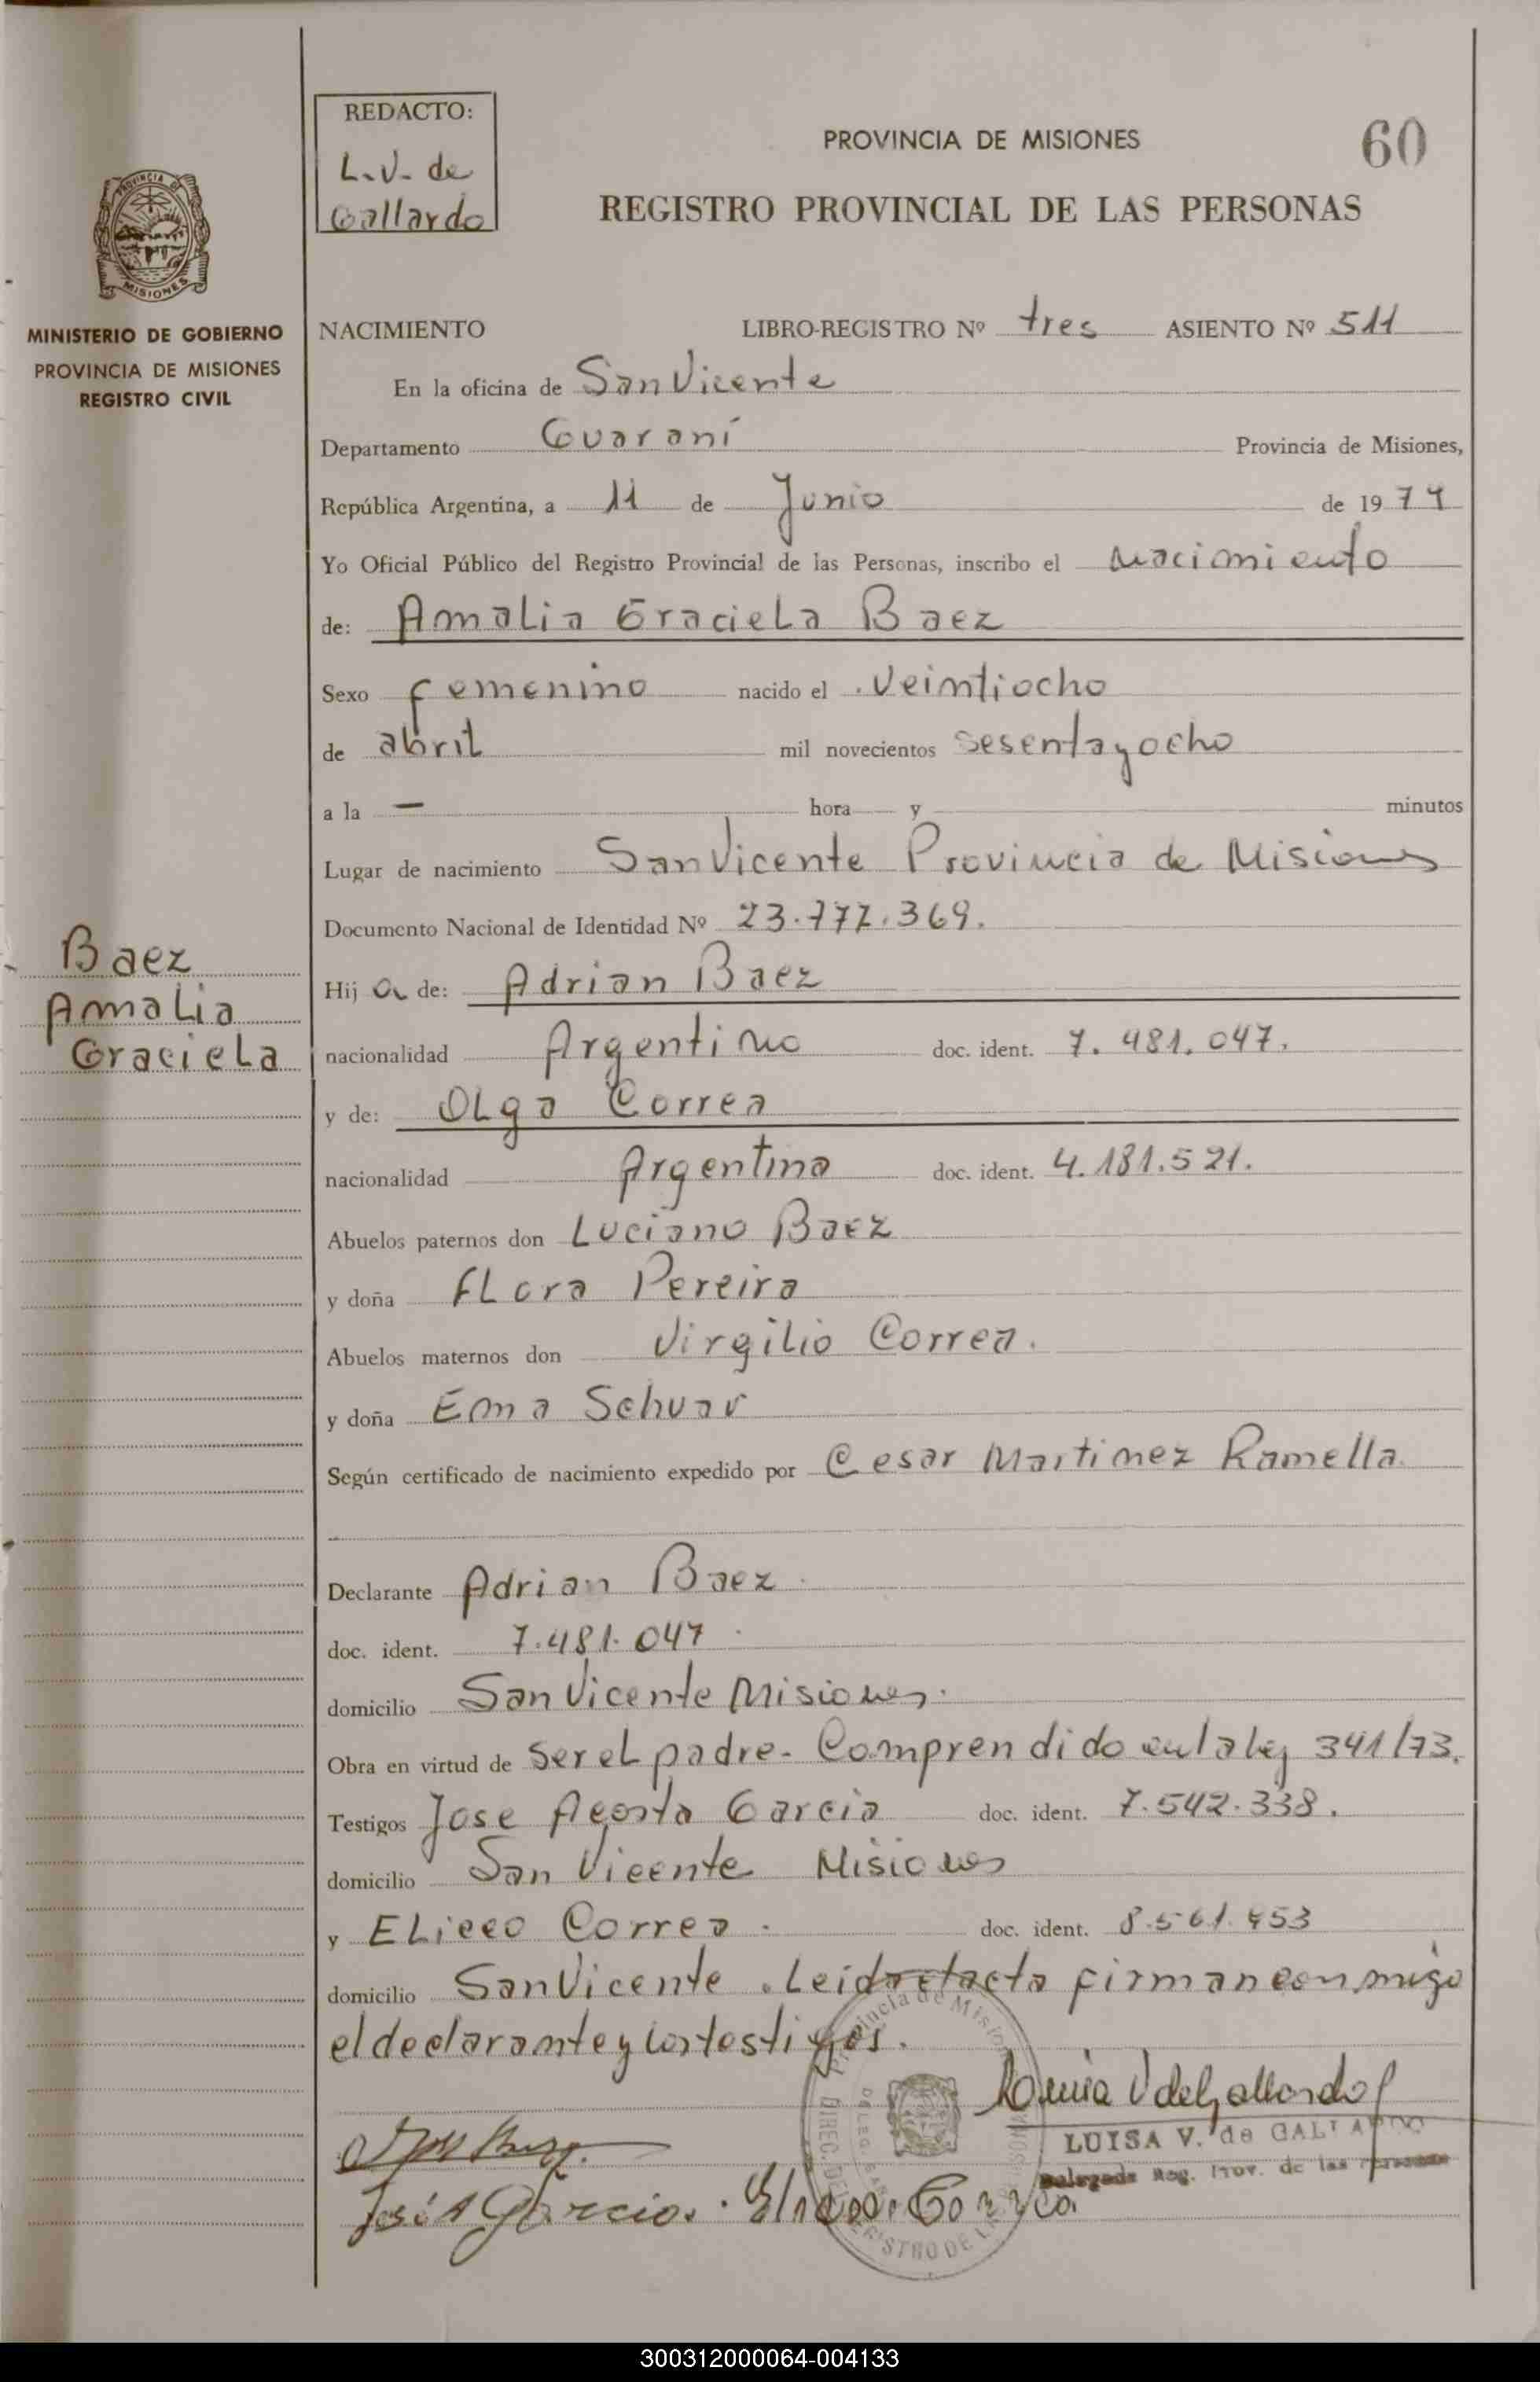 REDACTO:
L.V. de
Gallardo
PROVINCIA DE MISIONES
60
REGISTRO PROVINCIAL DE LAS PERSONAS
PROVINCIA DE
MISIONES
MINISTERIO DE GOBIERNO
PROVINCIA DE MISIONES
REGISTRO CIVIL
NACIMIENTO LIBRO-REGISTRO Nº tres ASIENTO Nº 511
En la oficina de San Vicente
Departamento Guaraní Provincia de Misiones,
República Argentina, a 11 de Junio de 1974
Yo Oficial Público del Registro Provincial de las Personas, inscribo el nacimiento
de: Amalia Graciela Baez
Sexo femenino nacido el veintiocho
de abril mil novecientos sesentayocho
a la — hora y minutos
Lugar de nacimiento San Vicente Provincia de Misiones
Documento Nacional de Identidad Nº 23.777.369.
Baez
Amalia
Graciela
Hij a de: Adrian Baez
nacionalidad Argentino doc. ident. 7.481.047.
y de: Olga Correa
nacionalidad Argentina doc. ident. 4.181.521.
Abuelos paternos don Luciano Baez
y doña Flora Pereira
Abuelos maternos don Virgilio Correa.
y doña Ema Schuar
Según certificado de nacimiento expedido por Cesar Martinez Ramella
Declarante Adrian Baez
doc. ident. 7.481.047
domicilio San Vicente Misiones.
Obra en virtud de ser el padre- Comprendido en la ley 341/73.
Testigos Jose Acosta Garcia doc. ident. 7.542.338.
domicilio San Vicente Misiones
y Correa doc. ident. 8.561.453
domicilio San Vicente. Leida el acta firman conmigo
el declarante y los testigos.
Luisa V de Gallardo
LUISA V. de GALLARDO
Delegada Reg. Prov. de las Personas
José A Garcia. Correa
300312000064-004133